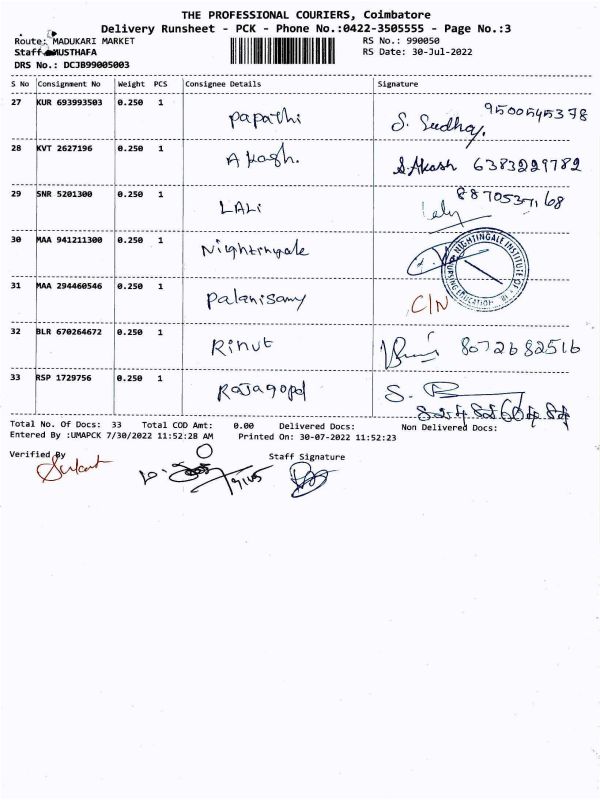 THE PROFESSIONAL COURIERS, Coimbatore
Delivery Runsheet - PCK - Phone No.:0422-3505555 - Page No.:3
Route: MADUKARI MARKET RS No.: 990050
Staff MUSTHAFA RS Date: 30-Jul-2022
DRS No.: DCJB99005003
S No Consignment No Weight PCS Consignee Details Signature
27 KUR 693993503 0.250 1 Papathi S. Sudha 9500545378
28 KVT 2627196 0.250 1 Akash. S.Akash 6383229782
29 SNR 5201300 0.250 1 LALi Lely
30 MAA 941211300 0.250 1 Nightingale NIGHTINGALE INSTITUTE OF NURSING EDUCATION
31 MAA 294460546 0.250 1 Palanisamy C/N
32 BLR 670264672 0.250 1 Rinut 8072682516
33 RSP 1729756 0.250 1 Rajagopal S.
Total No. Of Docs: 33 Total COD Amt: 0.00 Delivered Docs: Non Delivered Docs:
Entered By :UMAPCK 7/30/2022 11:52:28 AM Printed On: 30-07-2022 11:52:23
Verified By Staff Signature